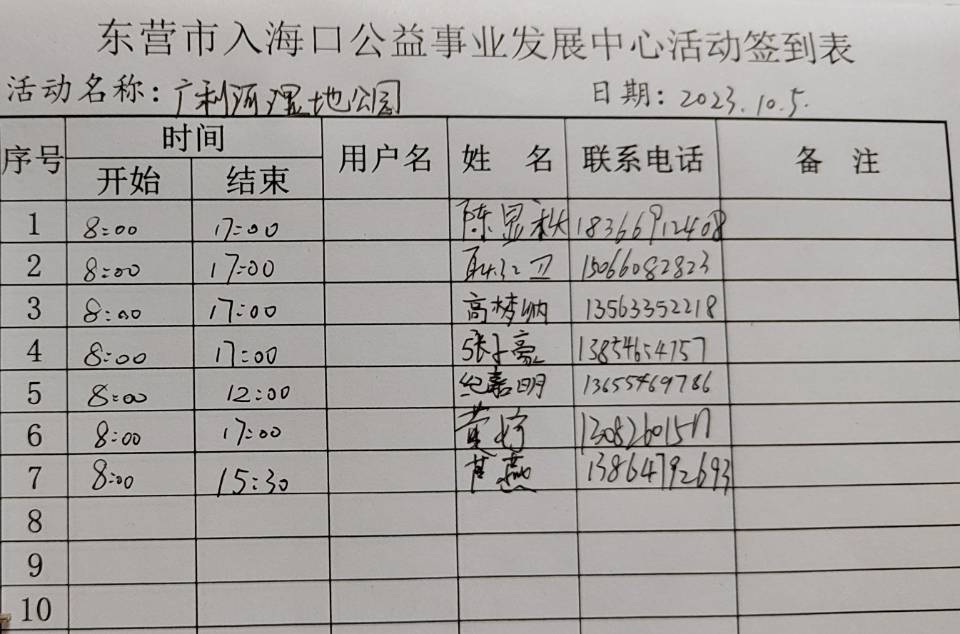 东营市入海口公益事业发展中心活动签到表
活动名称：广利河湿地公园 日期：2023.10.5.
序号 时间 用户名 姓 名 联系电话 备 注
开始 结束
1 8:00 17:00 陈显秋 18366912408
2 8:00 17:00 15066082823
3 8:00 17:00 高梦娜 13563352218
4 8:00 17:00 张子豪 13854654757
5 8:00 12:00 纪嘉明 13655469786
6 8:00 17:00 黄婷
7 8:00 15:30 燕 13864792693
8
9
10